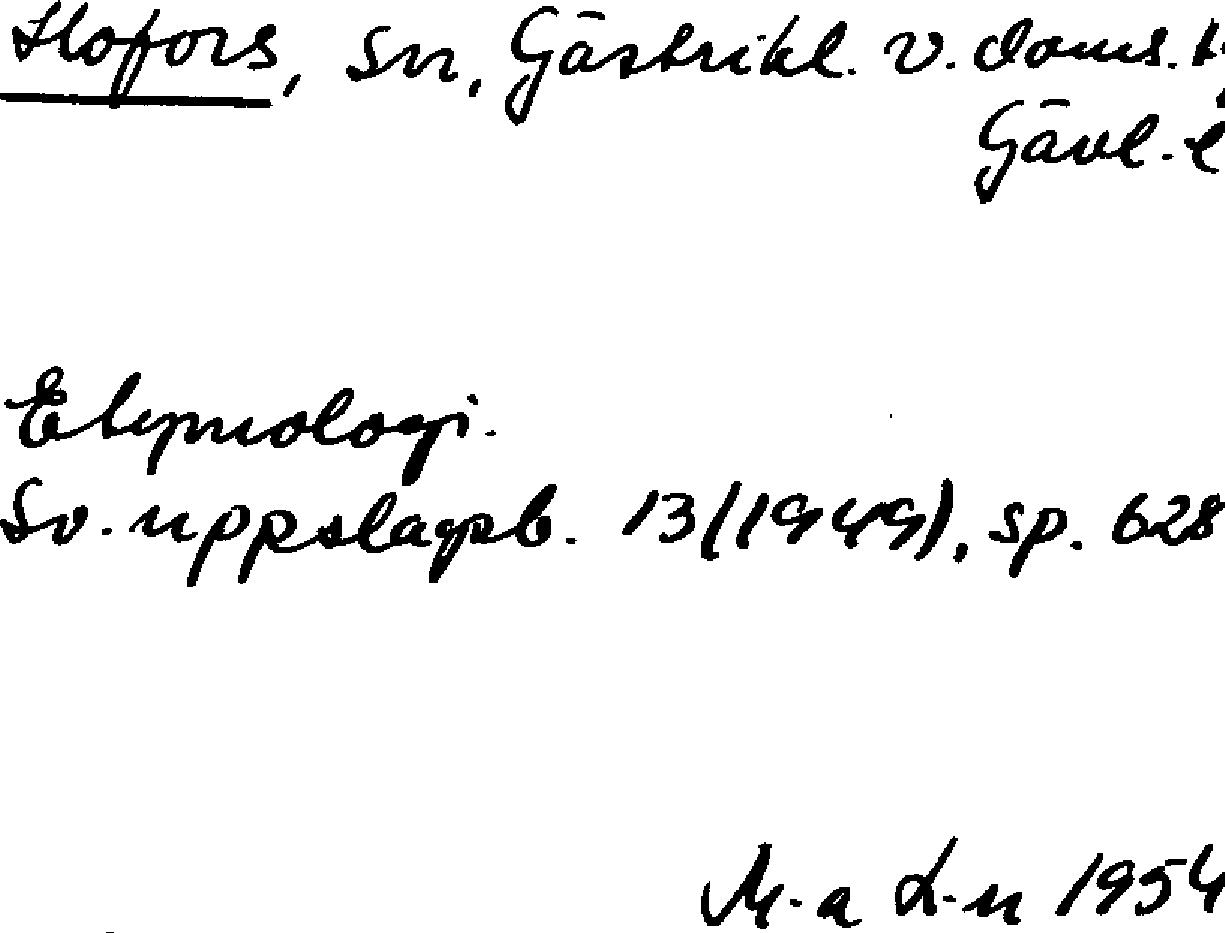 Hofors, Sn, Gästrikl. v. doms. t
Gävl. l
Etymologi.
Sv. uppslagsb. 13(1949), sp. 628
M-a L-n 1954